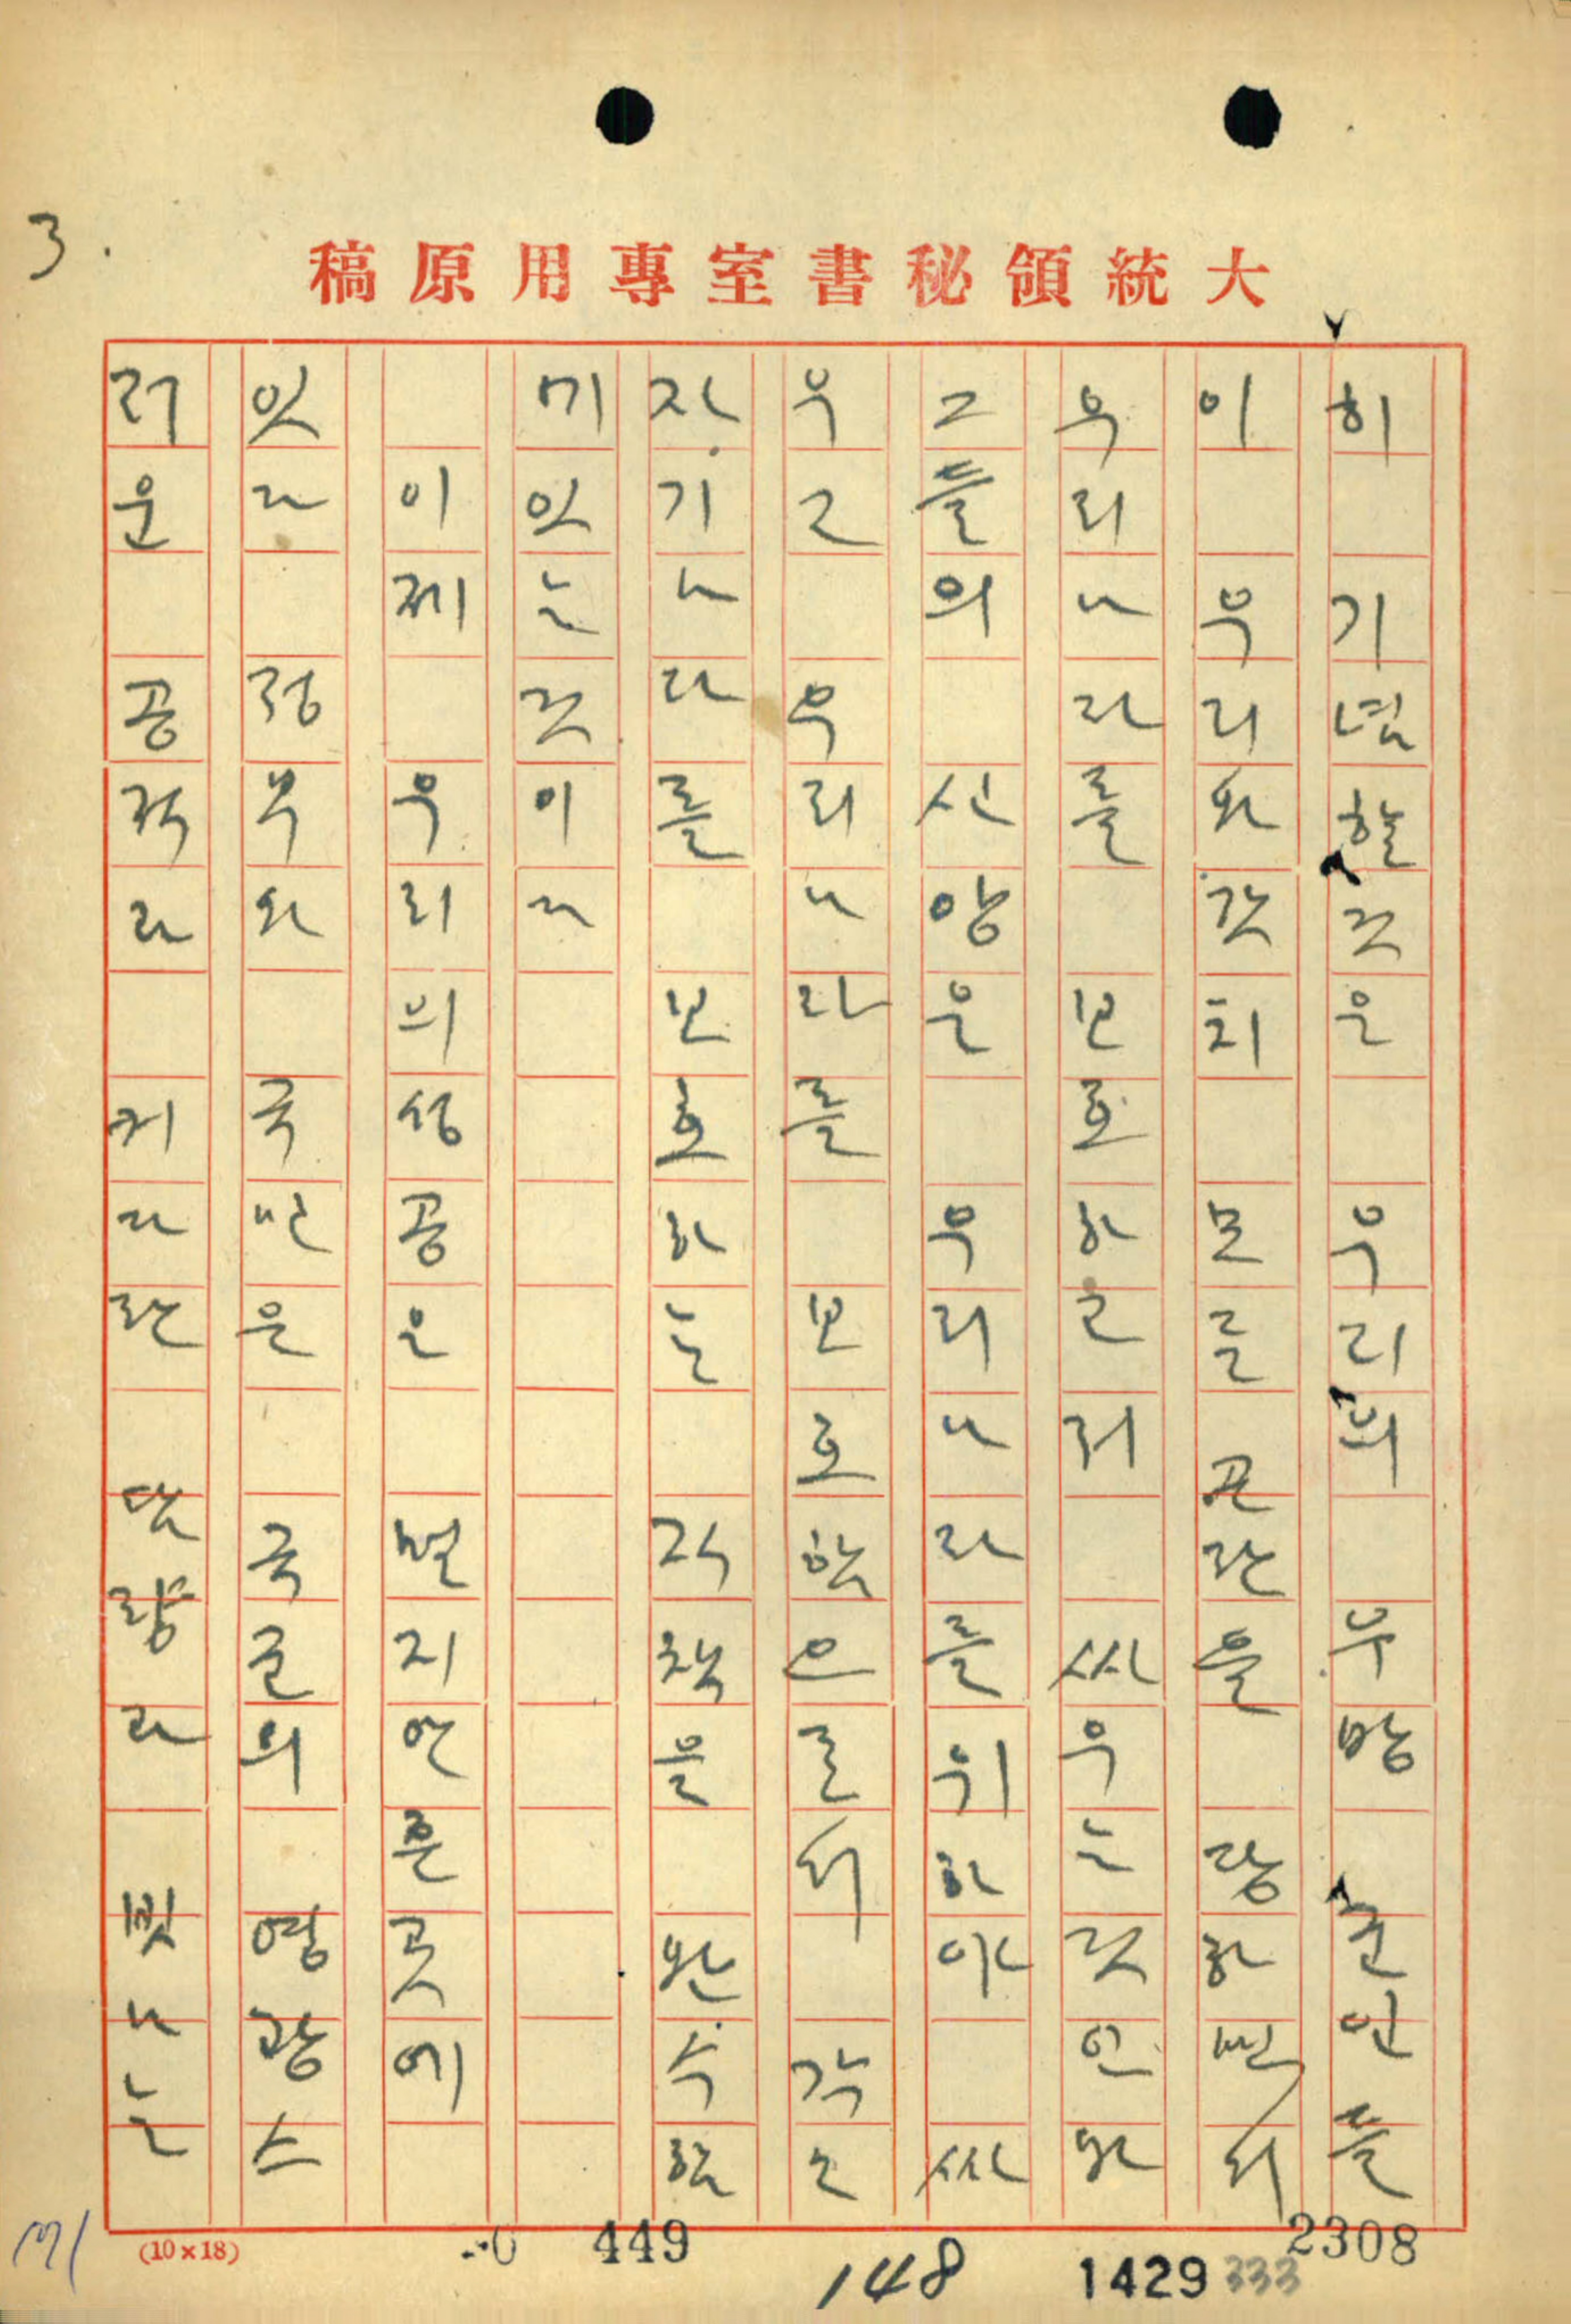 大統領秘書室專用原稿
3.
히 기념할것은 우리의 우방 군인들
이 우리와갓치 모든 곤란을 당하면서
우리나라를 보호하고저 싸우는것인바
그들의 신앙은 우리나라를위하야 싸
우고 우리나라를 보호함으로써 각々
자기나라를 보호하는 직책을 완수함
미잇는것이다
이제 우리의성공은 멀지안흔곳에
잇다 정부와 국민은 국군의 영광스
러운 공적과 커다란 담량과 빗나는
(10×18)
449
148
1429
333
2308